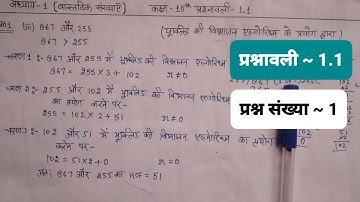 अध्याय-1 (वास्तविक संख्याएँ) कक्षा-10th प्रश्नावली-1.1
(iii) 867 और 255 (यूक्लिड की विभाजन एल्गोरिथ्म के प्रयोग द्वारा)
867 > 255
चरण 1:- 867 और 255 में यूक्लिड की विभाजन एल्गोरिथ्म
867 = 255 × 3 + 102 r ≠ 0
चरण 2:- 255 और 102 में यूक्लिड की विभाजन एल्गोरिथ्म
का प्रयोग करने पर-
255 = 102 × 2 + 51 r ≠ 0
चरण 3:- 102 और 51 में यूक्लिड की विभाजन एल्गोरिथ्म का प्रयोग
करने पर-
102 = 51 × 2 + 0 r = 0
अतः 867 और 255 का HCF = 51
102
0
51
102
प्रश्नावली ~ 1.1
प्रश्न संख्या ~ 1